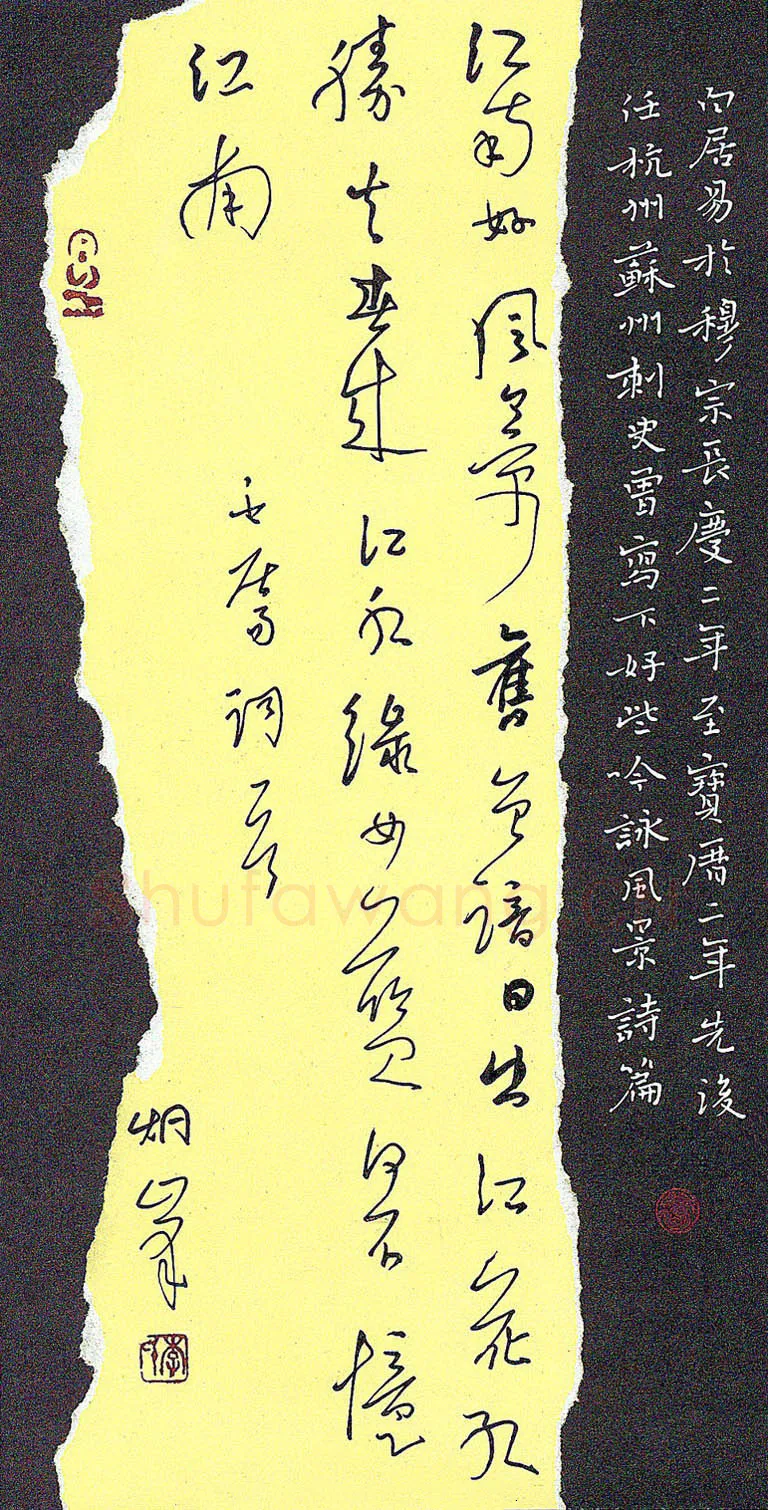 白居易於穆宗長慶二年至寶曆二年先後
任杭州蘇州刺史曾寫下好些吟詠風景詩篇
江南好風景舊曾諳日出江花紅
勝火春來江水綠如藍能不憶
江南
白居易詞一首
炳峯
Shufawang.cn